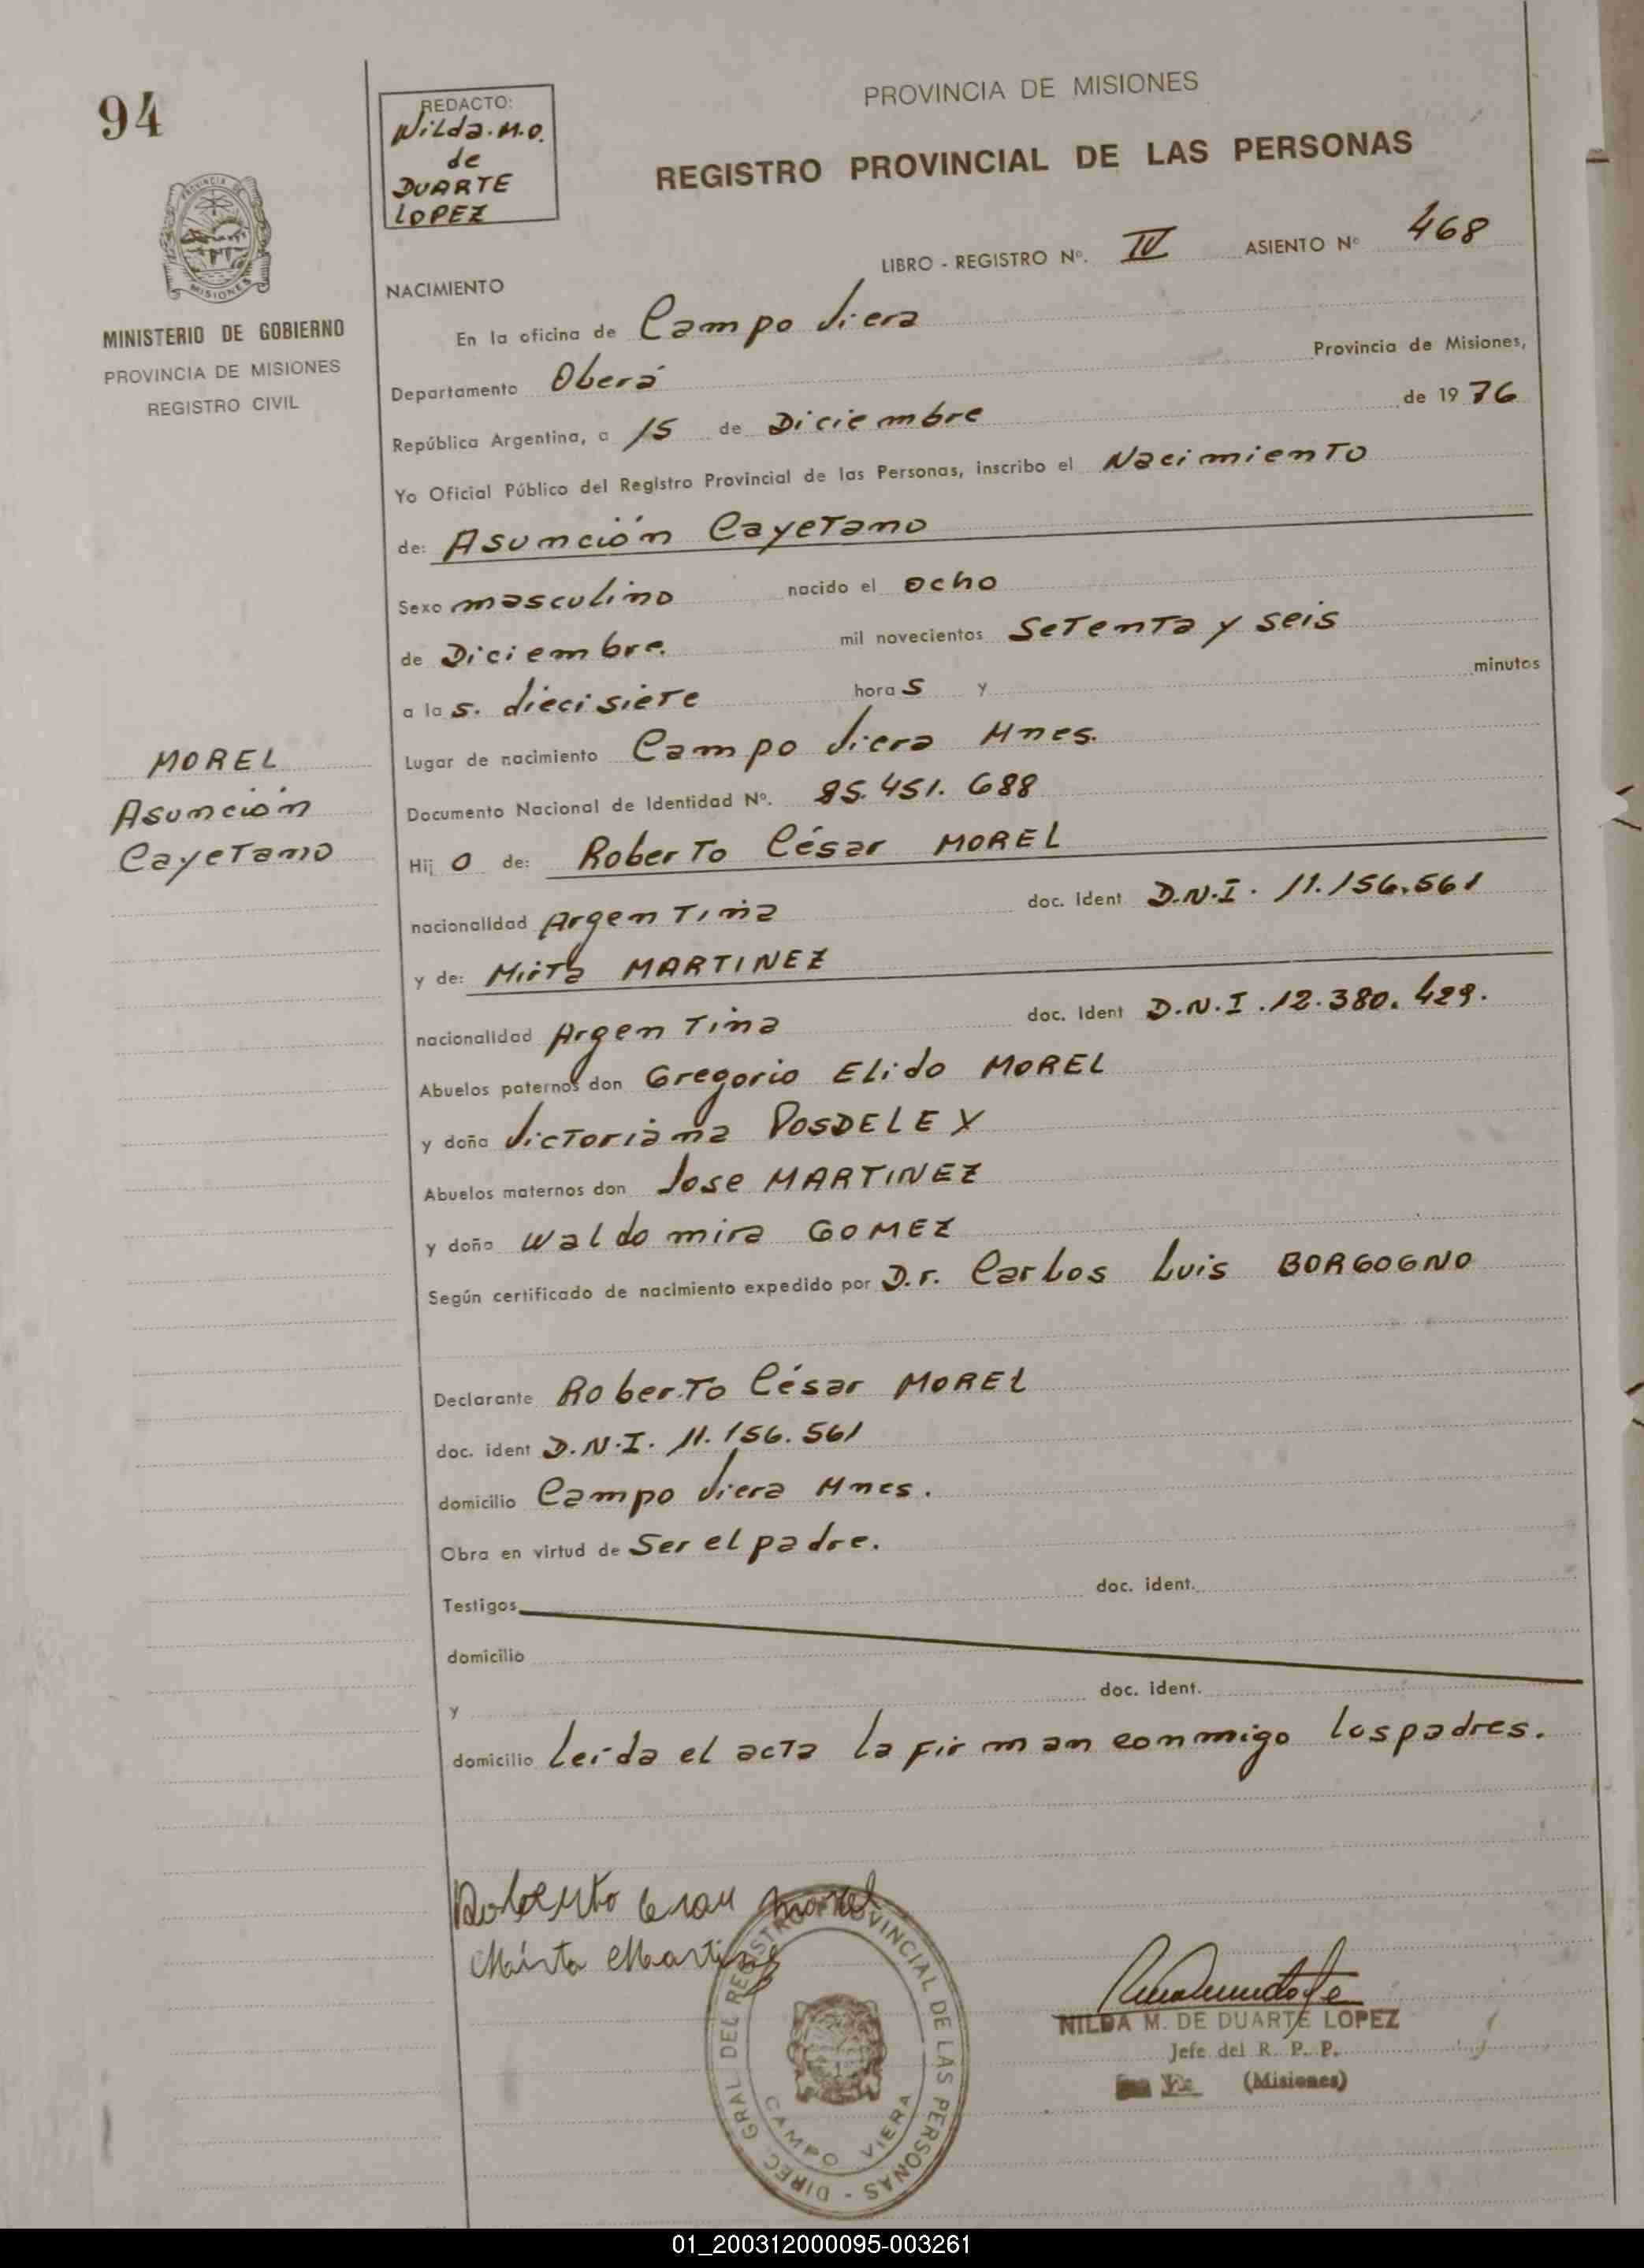 94
REDACTO:
Nilda.M.O.
de
DUARTE
LOPEZ
PROVINCIA DE MISIONES
REGISTRO PROVINCIAL DE LAS PERSONAS
LIBRO - REGISTRO Nº. IV ASIENTO Nº 468
MINISTERIO DE GOBIERNO
PROVINCIA DE MISIONES
REGISTRO CIVIL
NACIMIENTO
En la oficina de Campo Viera
Departamento Oberá Provincia de Misiones,
República Argentina, a 15 de Diciembre de 1976
Yo Oficial Público del Registro Provincial de las Personas, inscribo el Nacimiento
de: Asunción Cayetano
Sexo masculino nacido el ocho
de Diciembre. mil novecientos Setenta y seis
a las. diecisiete horas y minutos
Lugar de nacimiento Campo Viera Mnes.
Documento Nacional de Identidad Nº. 25.451.688
Hijo de: Roberto César MOREL
nacionalidad Argentina doc. ident D.N.I. 11.156.561
y de: Mirta MARTINEZ
nacionalidad Argentina doc. ident D.N.I. 12.380.429.
Abuelos paternos don Gregorio Elido MOREL
y doña Victoriana POSDELEY
Abuelos maternos don Jose MARTINEZ
y doña Waldomira GOMEZ
Según certificado de nacimiento expedido por D.r. Carlos Luis BORGOGNO
Declarante Roberto César MOREL
doc. ident D.N.I. 11.156.561
domicilio Campo Viera Mnes.
Obra en virtud de Ser el padre.
Testigos doc. ident.
domicilio
y doc. ident.
domicilio Leída el acta la firman conmigo los padres.
MOREL
Asunción
Cayetano
Roberto Cesar Morel
Mirta Martinez
DIREC. GRAL. DEL REGISTRO PROVINCIAL DE LAS PERSONAS
CAMPO VIERA
NILDA M. DE DUARTE LOPEZ
Jefe del R. P. P.
(Misiones)
01_200312000095-003261